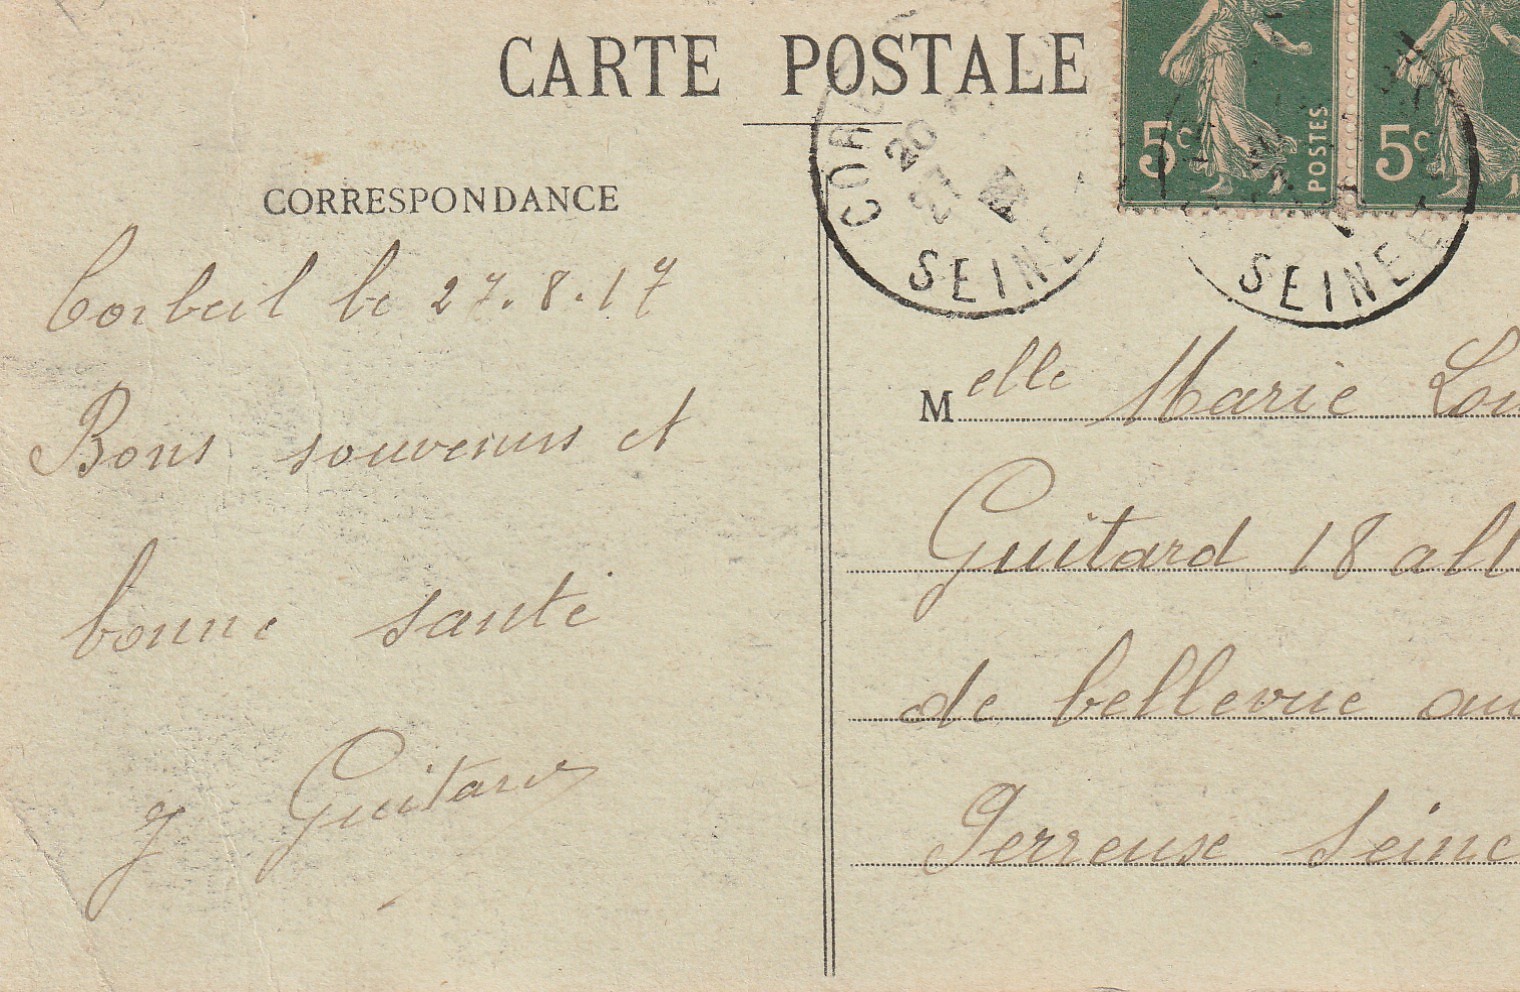 CARTE POSTALE
CORRESPONDANCE
5c POSTES
5c
20
27
SEINE
SEINE
Corbeil le 27.8.17
Bons souvenirs et
bonne santé
J Guitard
Melle Marie Lou
Guitard 18 all
de bellevue au
Perreux Seine